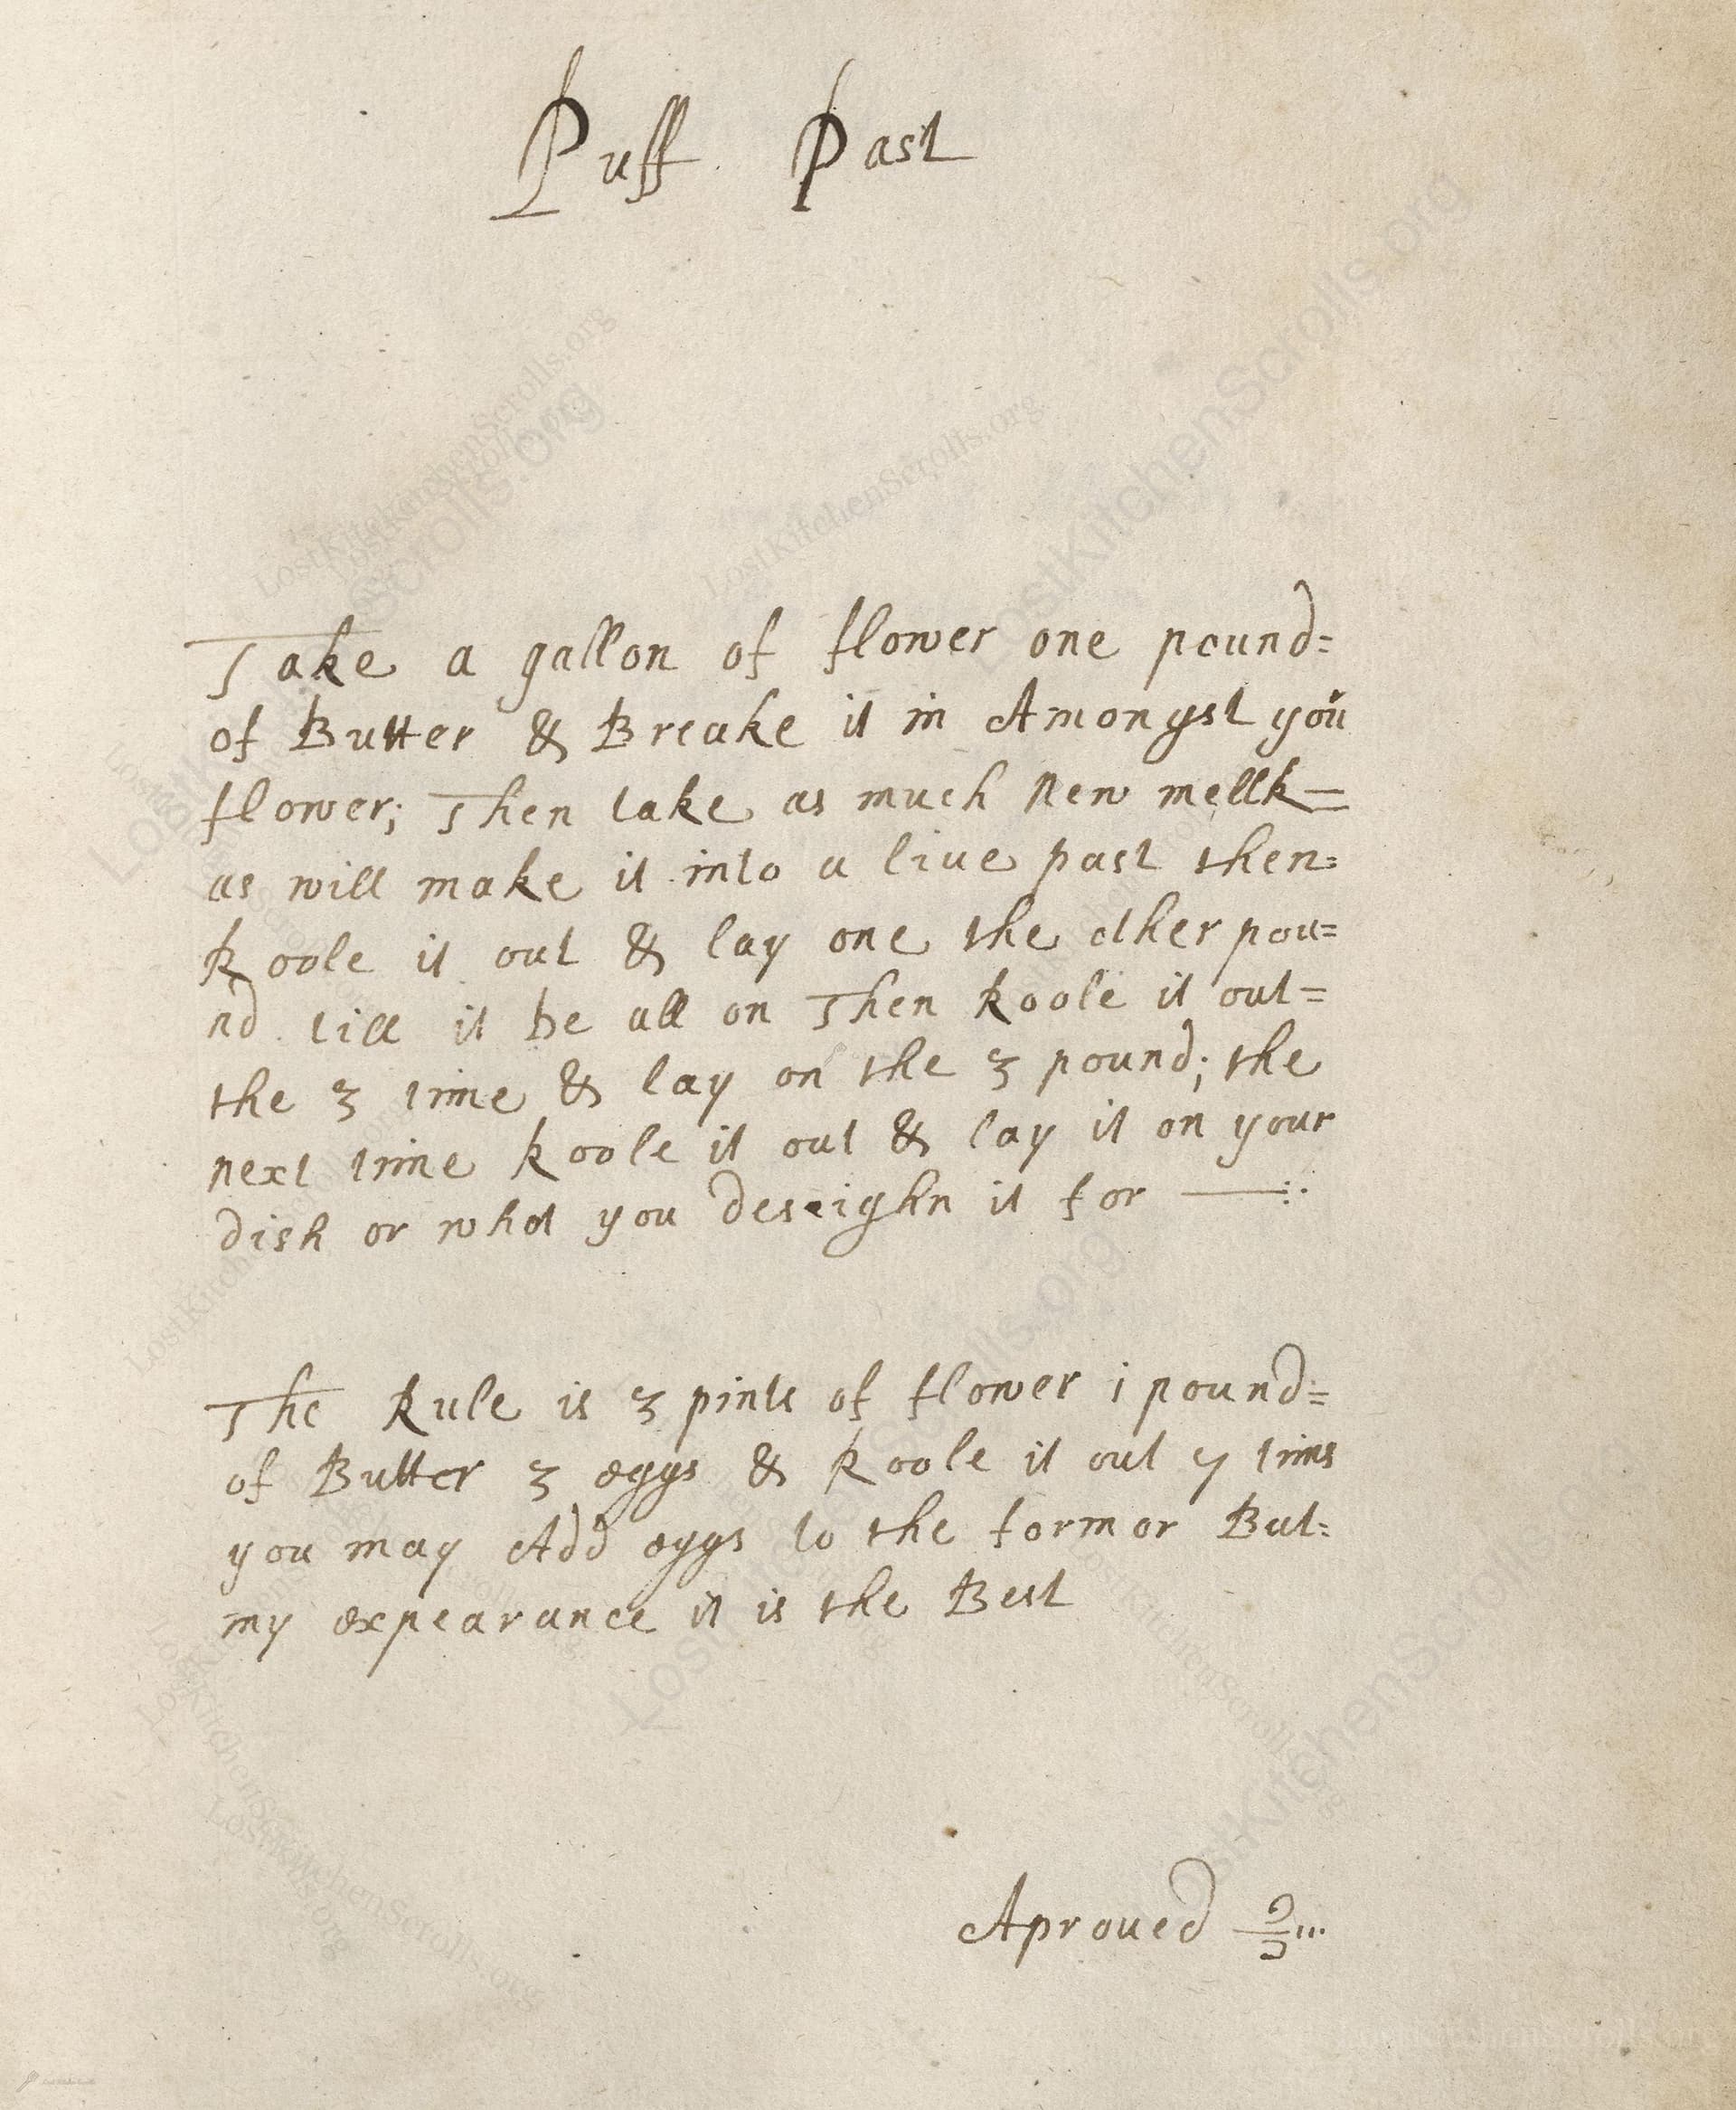 Puff Past
Take a gallon of flower one pound=
of Butter & Breake it in Amongst you
flower; Then take as much New mellk=
as will make it into a live past then=
Roole it out & lay one the other pou=
nd till it be all on Then Roole it out=
the 3 time & lay on the 3 pound; the
next time Roole it out & lay it on your
dish or whot you deseighn it for —:·
The Rule is 3 pints of flower i pound=
of Butter 3 eggs & Roole it out 7 tims
you may Add eggs to the formor But=
my expearance it is the Best
Aproued
LostKitchenScrolls.org
LostKitchenScrolls.org
LostKitchenScrolls.org